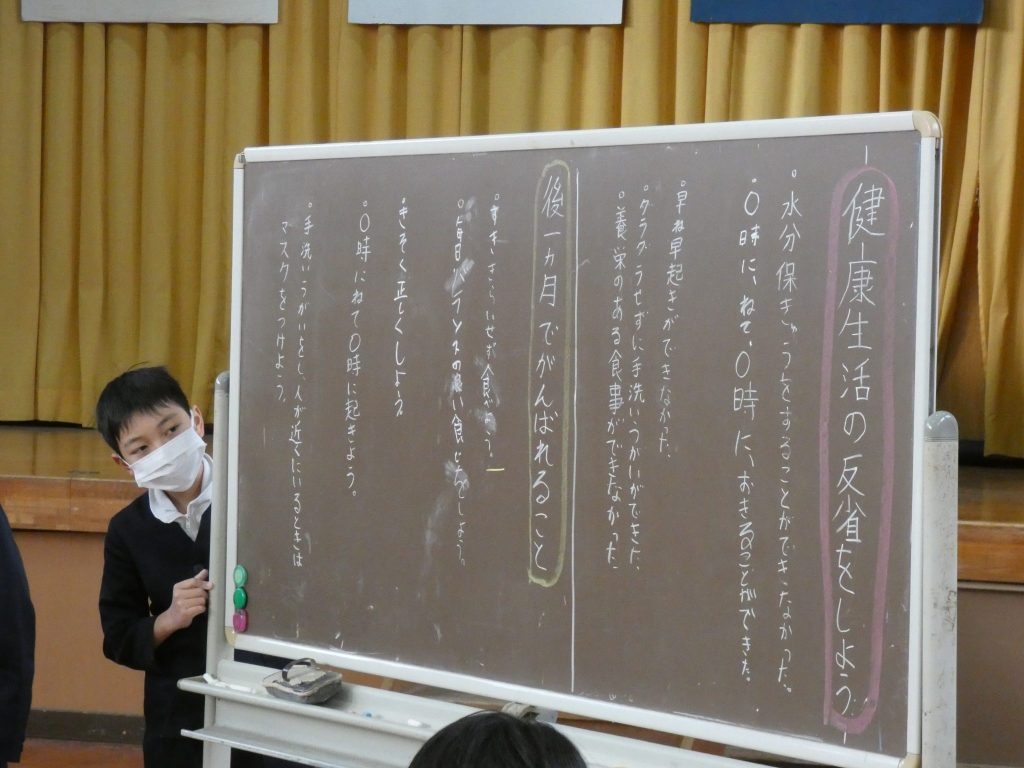 健康生活の反省をしよう
・水分保きゅうをすることができなかった。
・〇時に、ねて、〇時に、おきることができた。
・早ね早起きができなかった。
・グラグラせずに手洗いうがいができた。
・養栄のある食事ができなかった
後一ヵ月でがんばれること
・すききらいせず食
・毎日バランスの良い食じをしよう。
・きそく正しくしよう
・〇時にねて〇時に起きよう。
・手洗いうがいをし、人が近くにいるときは
マスクをつけよう。